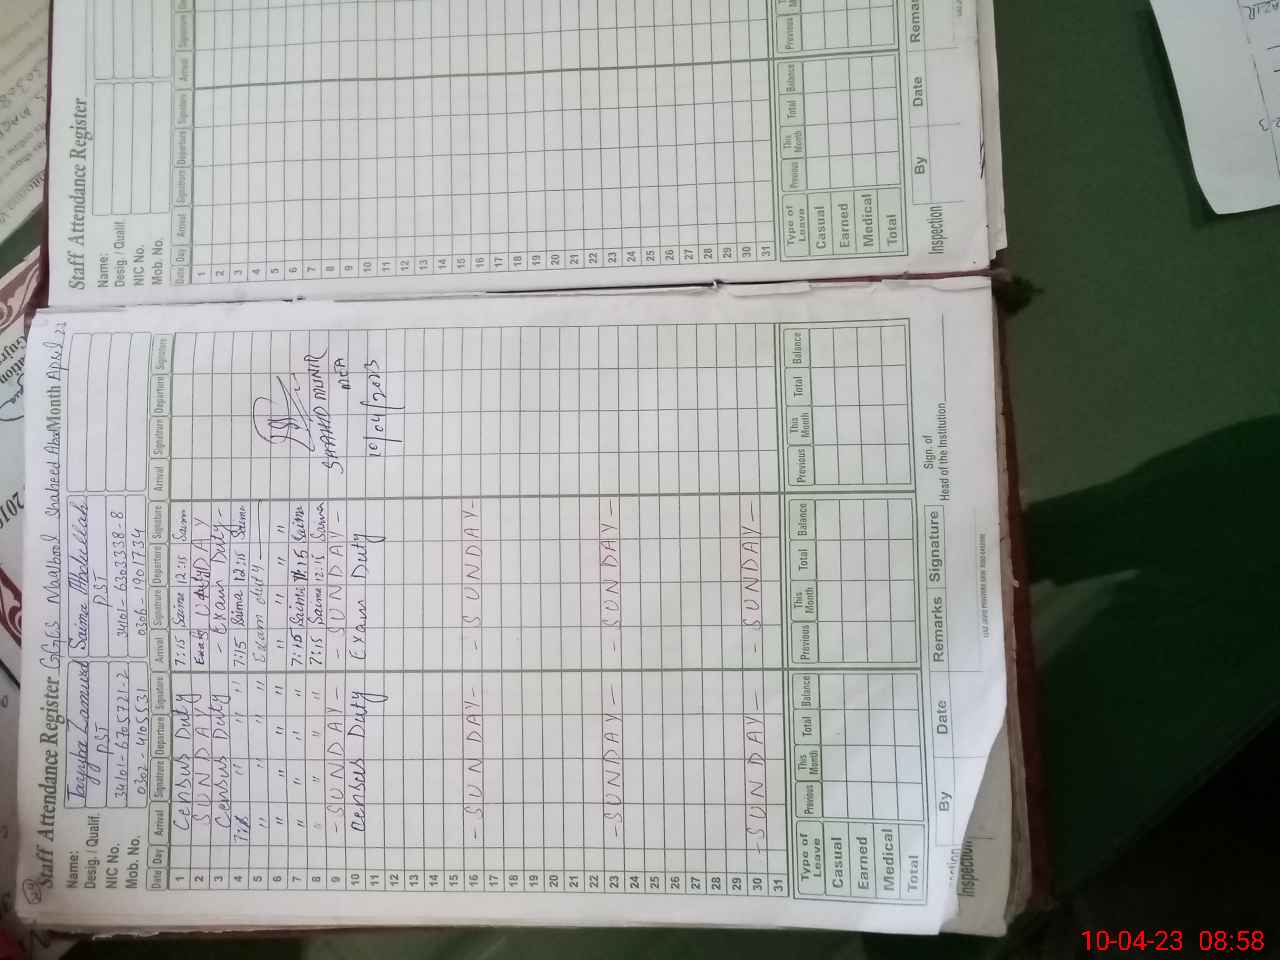 Staff Attendance Register GGPS Month April 23
Name: Tayyba Zamurd Saima Abdullah
Desig. / Qualif. PST PST
NIC No. 34101-6705721-2 34101-6303338-8
Mob. No. 0302-4105531 0306-1901734
Date Day Arrival Signatrure Departure Signature Arrival Signatrure Departure Signature Arrival Signatrure Departure Signature
1 Census Duty 7:15 Saima 12:15 Saima
2 SUNDAY SUNDAY
3 Census Duty - Exam Duty -
4 " " " 7:15 Saima 12:15 Saima
5 " " " " Exam duty
6 " " " " " " " "
7 " " " " 7:15 Saima 12:15 Saima
8 " " " " 7:15 Saima 12:15 Saima
9 - SUNDAY - - SUNDAY -
10 Census Duty Exam Duty
SHAHID MUNIR
MEA
10/04/2023
11
12
13
14
15
16 - SUNDAY - - SUNDAY -
17
18
19
20
21
22
23 - SUNDAY - - SUNDAY -
24
25
26
27
28
29
30 - SUNDAY - - SUNDAY -
31
Type of Leave Previous This Month Total Balance Previous This Month Total Balance Previous This Month Total Balance
Casual
Earned
Medical
Total
Inspection By Date Remarks Signature
Sign. of
Head of the Institution
Staff Attendance Register
Name:
Desig. / Qualif.
NIC No.
Mob. No.
Date Day Arrival Signatrure Departure Signature Arrival Signatrure
1
2
3
4
5
6
7
8
9
10
11
12
13
14
15
16
17
18
19
20
21
22
23
24
25
26
27
28
29
30
31
Type of Leave Previous This Month Total Balance Previous
Casual
Earned
Medical
Total
Inspection By Date Remar
10-04-23 08:58